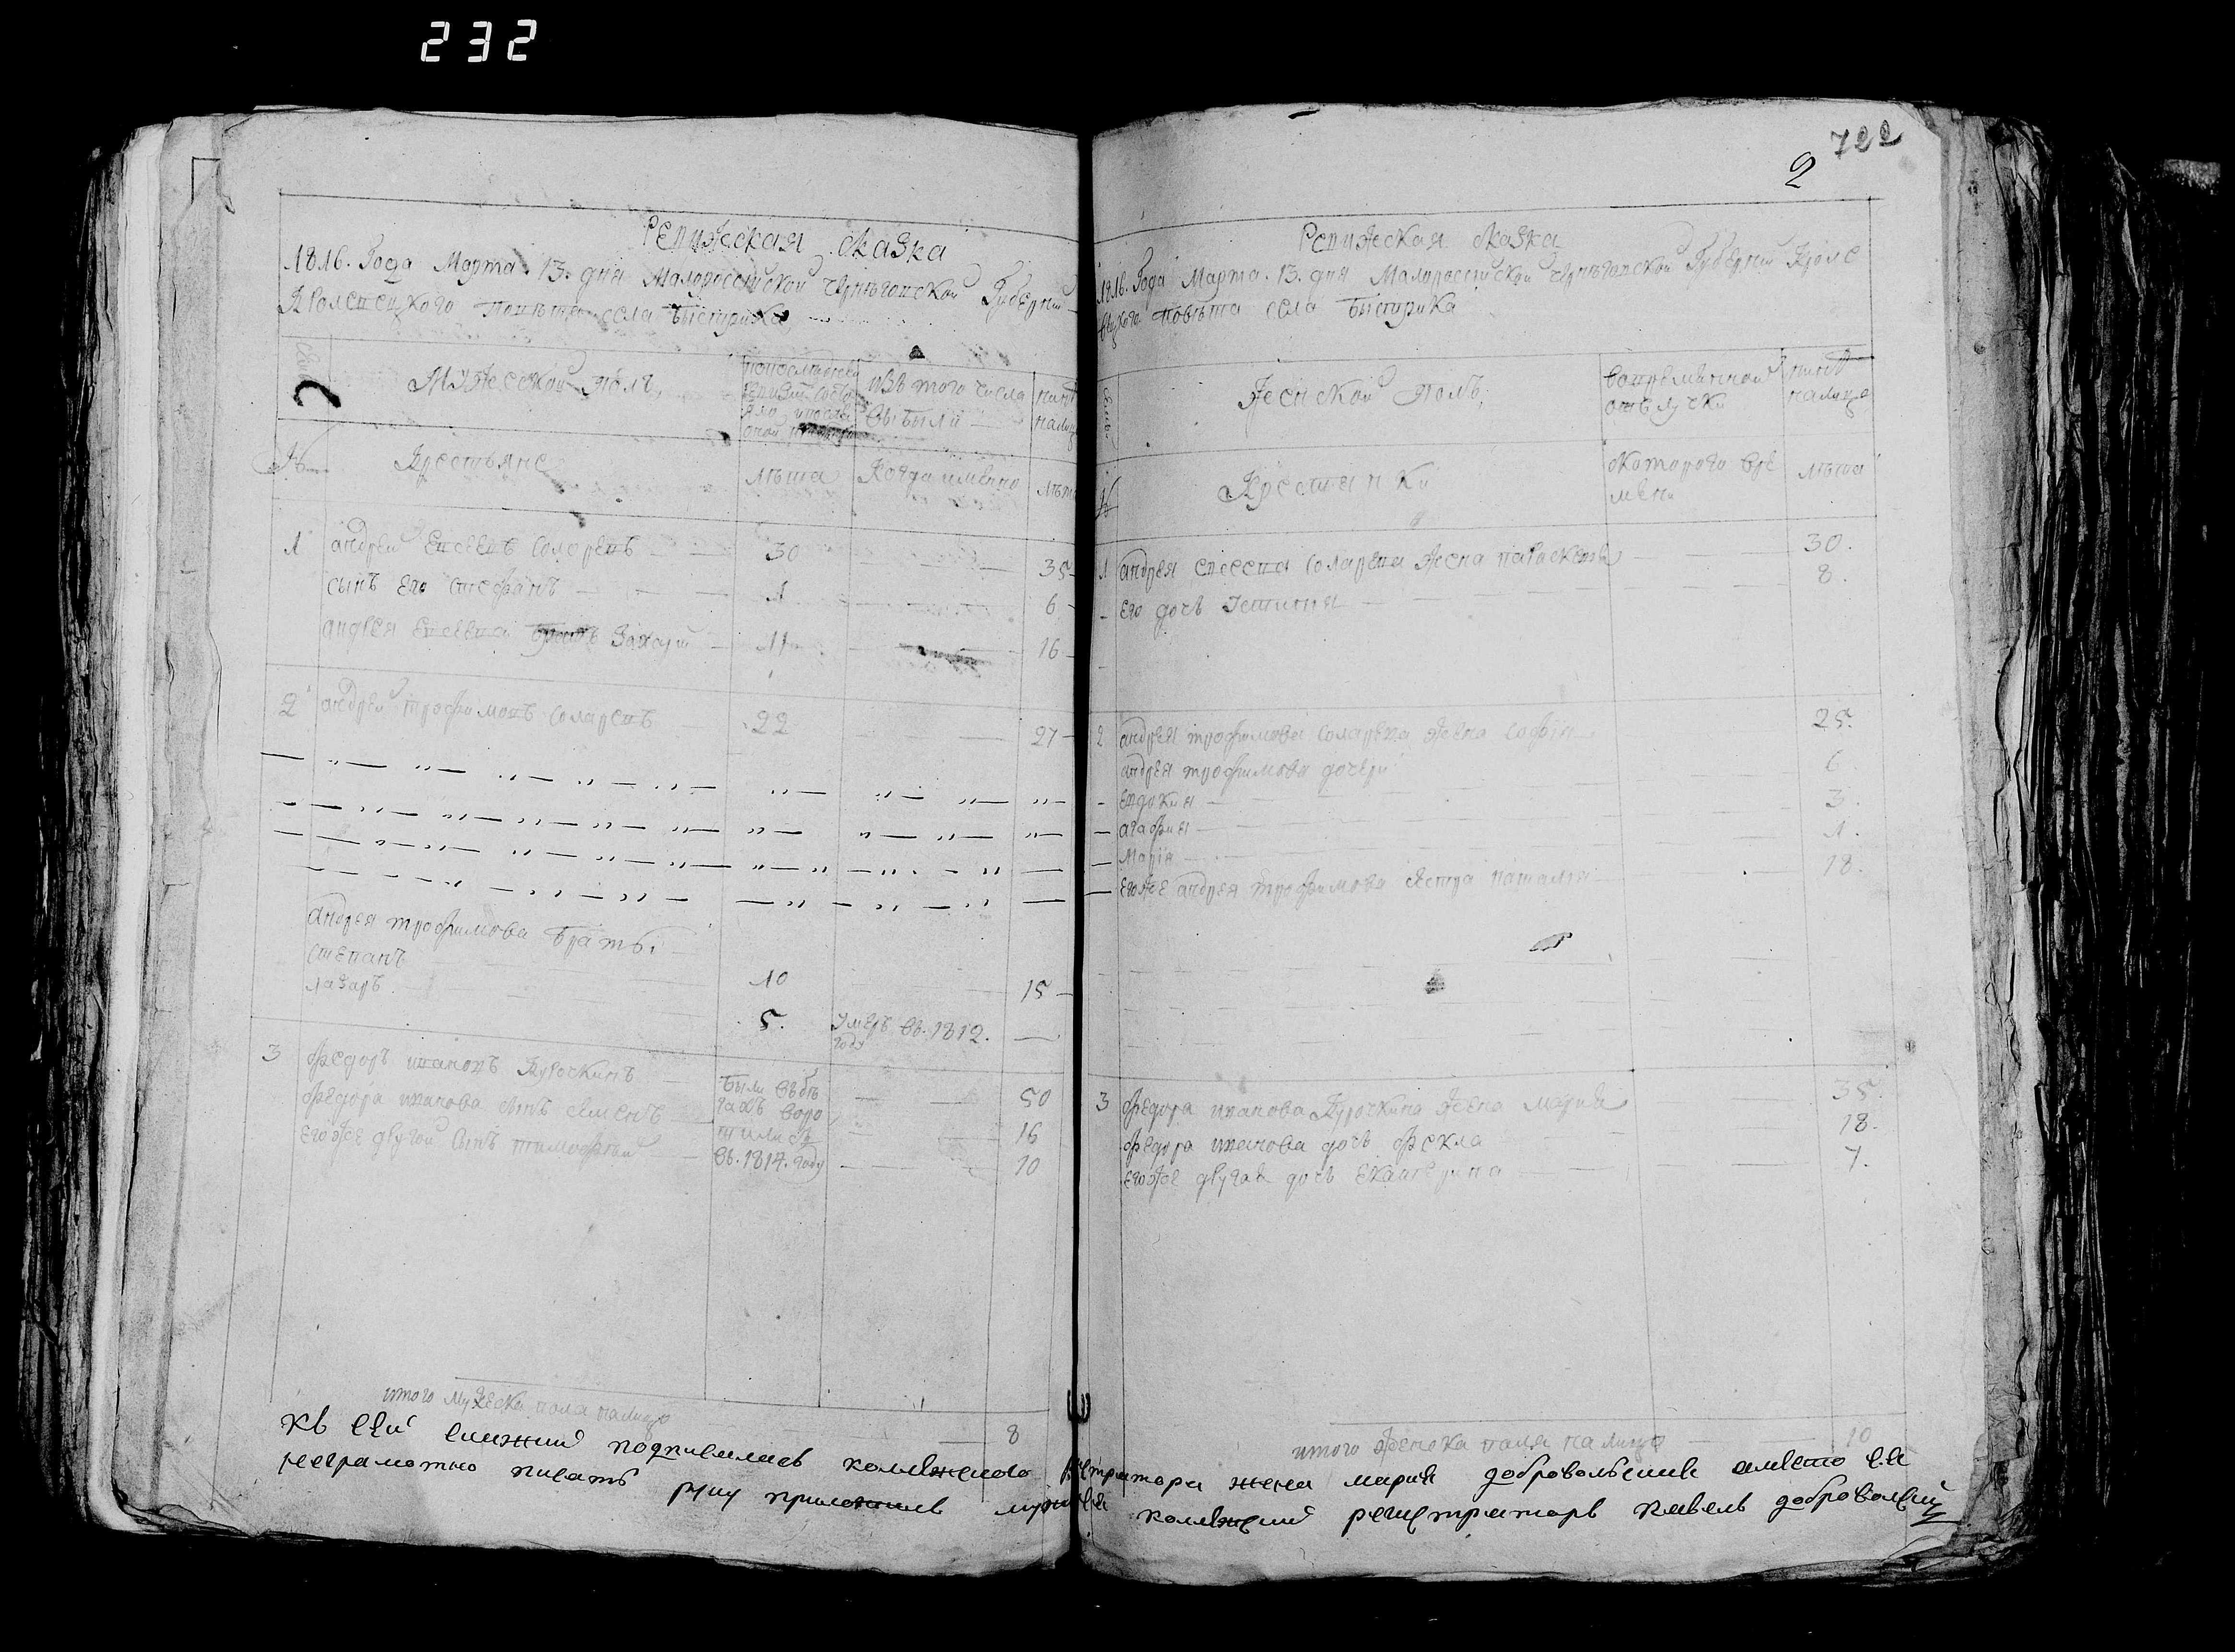 232
Ревижская сказка
1816. Года Марта. 13. дня Малороссiйской Черниговской Губернiи
Кролевецкого повѣта села Быстрика
Мужеской полъ,
изъ того числа
выбыли
Крестьяне
лѣта
Когда имянно
лѣта
1 андрей Евсеевъ Соларевъ 30 35
сынъ его Стефанъ 1 6
андрея Евсеева братъ Захарiй 11 16
2 андрей трофимовъ Соларевъ 22 27
андрея трофимова братьi
степанъ 10 15
лазаръ 5. Умеръ въ. 1812. году
3 федоръ ивановъ Курочкинъ 50
федора иванова сынъ семенъ 16
егоже другой сынъ тимофѣй 10
были въ бѣ
гахъ воро
тились
въ. 1814. году
итого мужеска пола налицо 8
722
2
Ревижская сказка
1816. Года Марта. 13. дня Малороссiйской Черниговской Губернiи Кроле
вецкого повѣта села Быстрика
Женской полъ,
во временной
отлучки
налицо
Крестьянки
с которого вре
мени
лѣта
1 андрея Евсеева Соларева жена параскевiя 30.
его дочъ Устинiя 8.
2 андрея трофимова Соларева жена софiя 25.
андрея трофимова дочери
Евдокия 6
агафия 3.
Марiя 1.
егоже андрея трофимова сестра наталiя 18.
3 федора иванова Курочкина жена мария 35.
федора иванова дочъ фекла 18.
егоже другая дочъ екатерина 7.
итого женска пола налицо 10
къ сей скажки подписалась колежского регистратора жена мария добровольская вместо ея
неграмотно писать руку приложилъ мужъ ея колежский регистраторъ павелъ добровольский